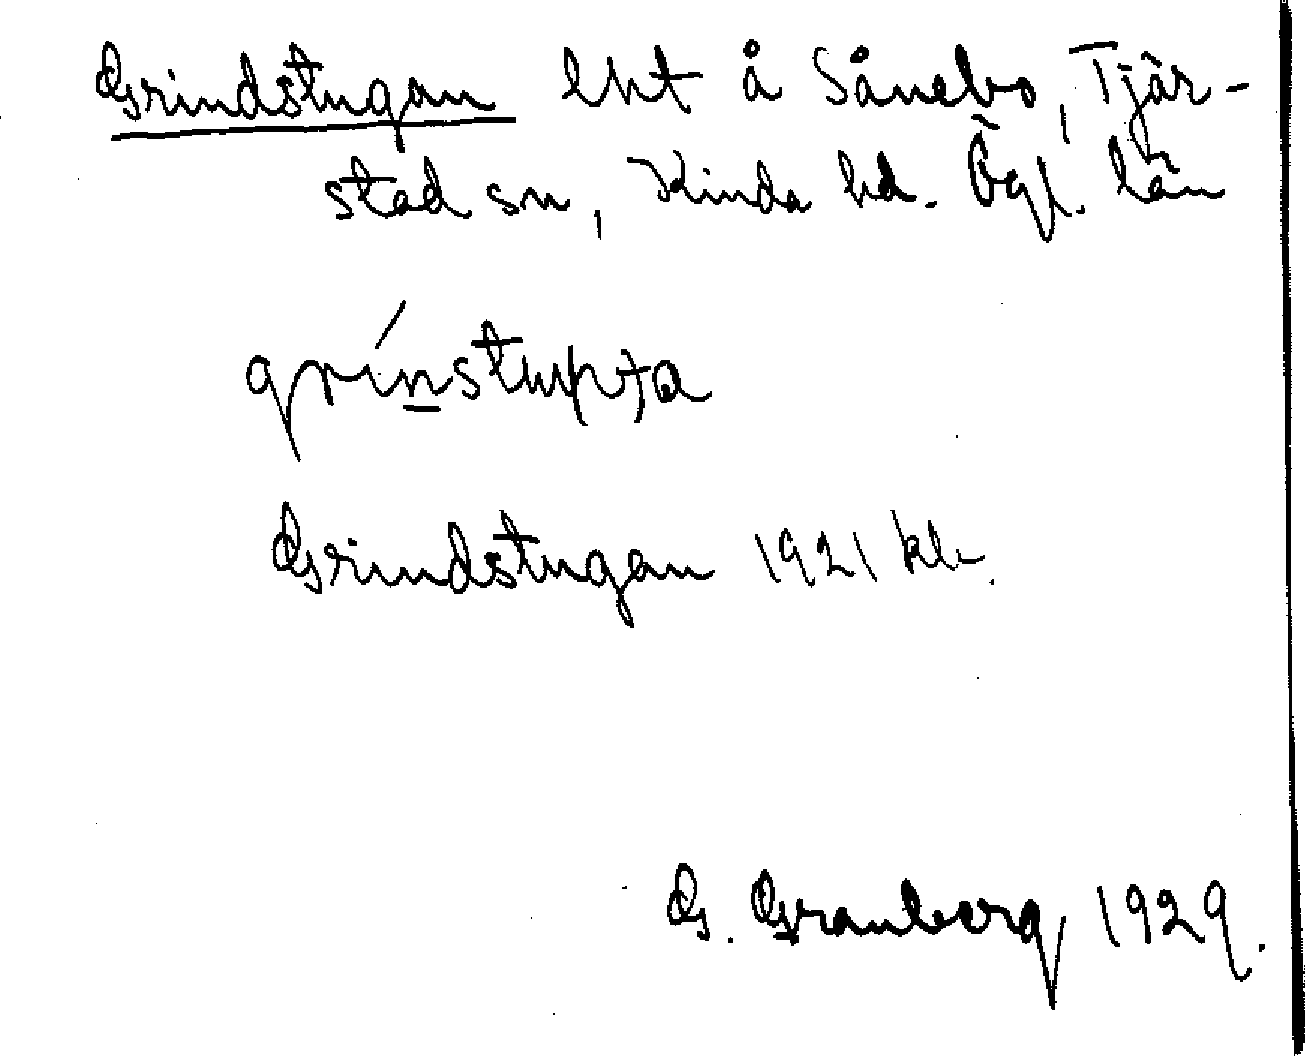 Grindstugan lht å Sånebo, Tjär-
stad sn, Kinda hd. Ögl. län
Grindstugan 1921 klk.
G. Granberg 1929.